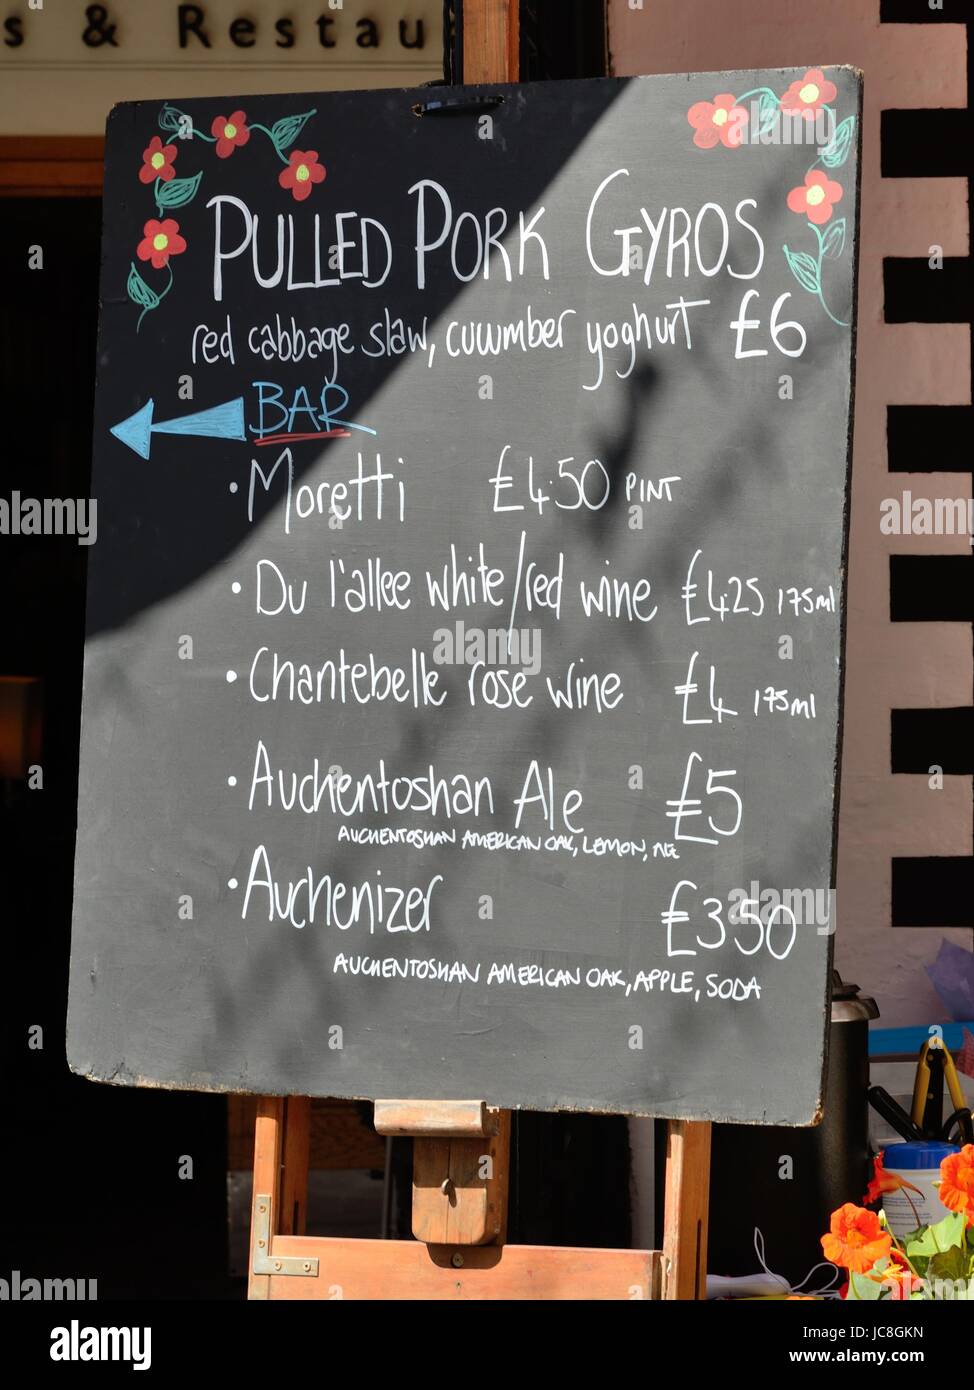 s & Restau
PULLED PORK GYROS
red cabbage slaw, cucumber yoghurt £6
BAR
• Moretti £4.50 PINT
• Du l'allee white/red wine £4.25 175ml
• Chantebelle rose wine £4 175ml
• Auchentoshan Ale £5
AUCHENTOSHAN AMERICAN OAK, LEMON, ALE
• Auchenizer £3.50
AUCHENTOSHAN AMERICAN OAK, APPLE, SODA
alamy
Image ID: JC8GKN
www.alamy.com